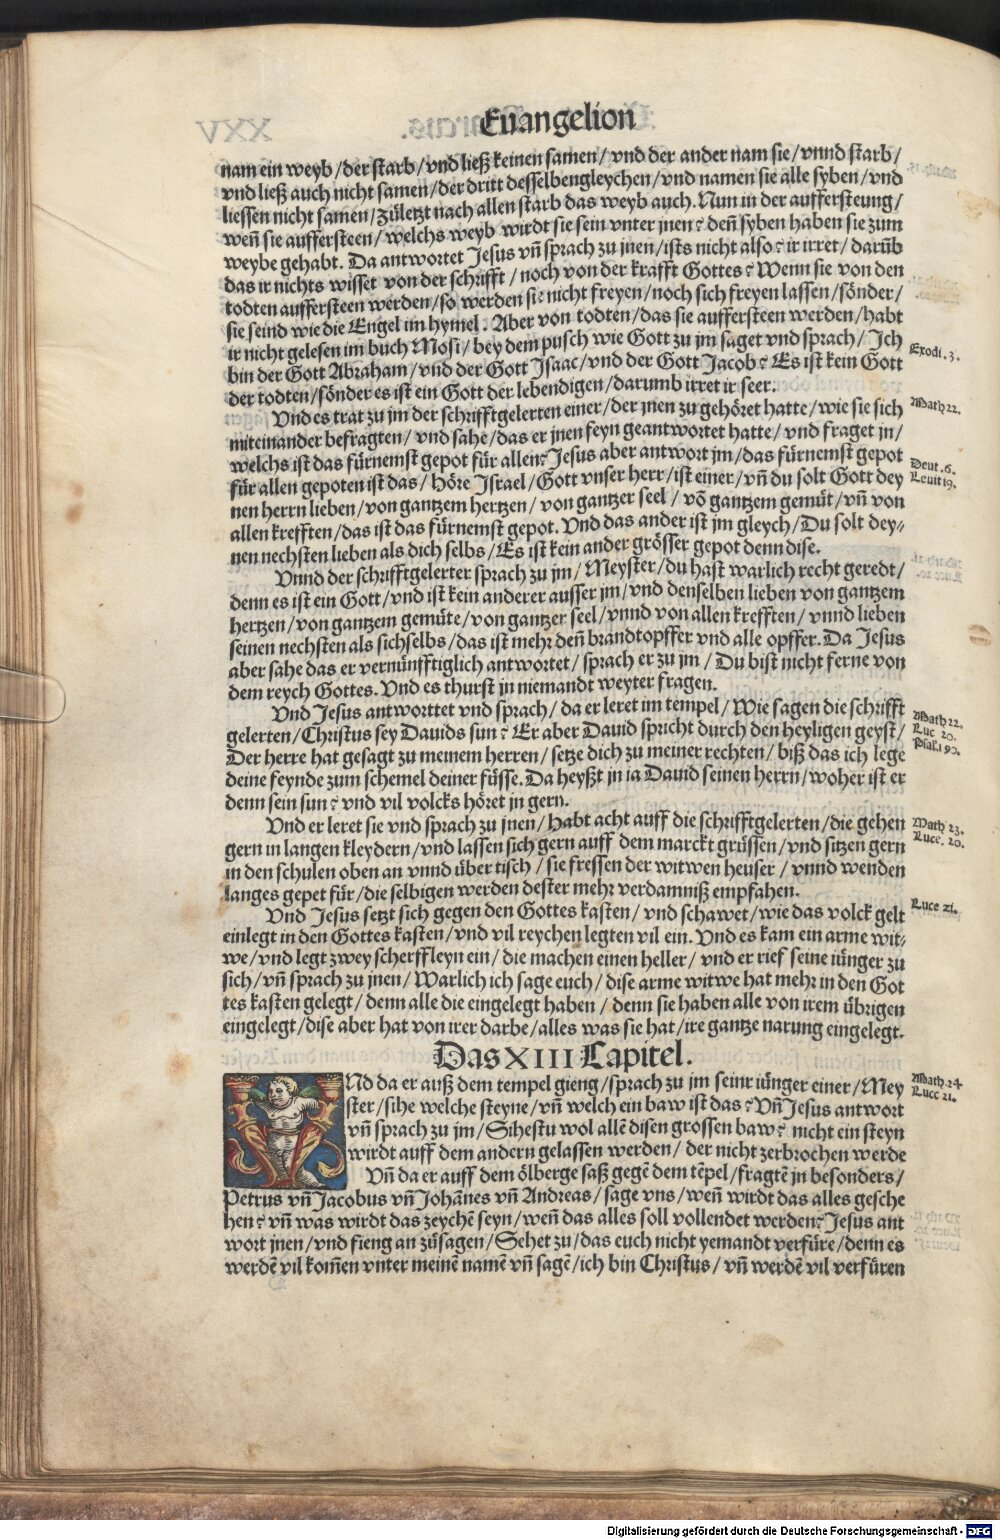 Euangelion
nam ein weyb / der starb / vnd ließ keinen samen / vnd der ander nam sie / vnnd starb /
vnd ließ auch nicht samen / der dritt desselbengleychen / vnd namen sie alle syben / vnd
liessen nicht samen / zůletzt nach allen starb das weyb auch. Nun in der aufferstEung /
weñ sie aufferSteen / welchs weyb wirdt sie sein vnter jnen? deñ syben haben sie zum
weybe gehabt. Da antwortet Jesus vñ sprach zu jnen / ists nicht also? ir irret / darũb
das ir nichts wisset von der schrifft / noch von der krafft Gottes? Wenn sie von den
todten aufferSteen werden / so werden sie nicht freyen / noch sich freyen lassen / sonder /
sie seind wie die Engel im hymel. Aber von todten / das sie aufferSteen werden / habt
ir nicht gelesen im buch Mosi / bey dem pusch wie Gott zu jm saget vnd sprach / Ich
Exodi. 3.
bin der Gott Abraham / vnd der Gott Isaac / vnd der Gott Jacob? Es ist kein Gott
der todten / sönder es ist ein Gott der lebendigen / darumb irret ir seer.
Vnd es trat zu jm der schrifftgelerten einer / der jnen zu gehöret hatte / wie sie sich
Math 22.
miteinander befragten / vnd sahe / das er jnen feyn geantwortet hatte / vnd fraget jn /
welchs ist das fürnemst gepot für allen? Jesus aber antwort jm / das fürnemst gepot
für allen gepoten ist das / Höre Israel / Gott vnser herr / ist einer / vñ du solt Gott dey
Deut. 6.
Leuit 19.
nen herrn lieben / von gantzem hertzen / von gantzer seel / võ gantzem gemüt / vñ von
allen krefften / das ist das fürnemst gepot. Vnd das ander ist jm gleych / Du solt dey⸗
nen nechsten lieben als dich selbs / Es ist kein ander grösser gepot denn dise.
Vnnd der schrifftgelerter sprach zu jm / Meyster / du hast warlich recht geredt /
denn es ist ein Gott / vnd ist kein anderer ausser jm / vnd denselben lieben von gantzem
hertzen / von gantzem gemüte / von gantzer seel / vnnd von allen krefften / vnnd lieben
seinen nechsten als sichselbs / das ist mehr deñ brandtopffer vnd alle opffer. Da Jesus
aber sahe das er vernünfftiglich antwortet / sprach er zu jm / Du bist nicht ferne von
dem reych Gottes. Vnd es thurst jn niemandt weyter fragen.
Vnd Jesus antworttet vnd sprach / da er leret im tempel / Wie sagen die schrifft
Math 22.
Luc 20.
gelerten / Christus sey Dauids sun? Er aber Dauid spricht durch den heyligen geyst /
Der herre hat gesagt zu meinem herren / setze dich zu meiner rechten / biß das ich lege
deine feynde zum schemel deiner füsse. Da heyßt jn ia Dauid seinen herrn / woher ist er
denn sein sun? vnd vil volcks höret jn gern.
Vnd er leret sie vnd sprach zu jnen / Habt acht auff die schrifftgelerten / die gehen
Math 23.
Luce. 20.
gern in langen kleydern / vnd lassen sich gern auff dem marckt grüssen / vnd sitzen gern
in den schulen oben an vnnd über tisch / sie fressen der witwen heuser / vnnd wenden
langes gepet für / die selbigen werden dester mehr verdamniß empfahen.
Vnd Jesus setzt sich gegen den Gottes kasten / vnd schawet / wie das volck gelt
Luce 21.
einlegt in den Gottes kasten / vnd vil reychen legten vil ein. Vnd es kam ein arme wit⸗
we / vnd legt zwey scherffleyn ein / die machen einen heller / vnd er rief seine iünger zu
sich / vñ sprach zu jnen / Warlich ich sage euch / dise arme witwe hat mehr in den Got
tes kasten gelegt / denn alle die eingelegt haben / denn sie haben alle von irem übrigen
eingelegt / dise aber hat von irer darbe / alles was sie hat / ire gantze narung eingelegt.
Das XIII Capitel.
VNd da er auß dem tempel gieng / sprach zu jm seinr iünger einer / Mey
Math. 24
Luce 21.
ster / sihe welche steyne / vñ welch ein baw ist das? Vñ Jesus antwort
vñ sprach zu jm / Sihestu wol allẽ disen grossen baw? nicht ein steyn
wirdt auff dem andern gelassen werden / der nicht zerbrochen werde
Vñ da er auff dem ölberge saß gegẽ dem tẽpel / fragtẽ jn besonders /
Petrus vñ Jacobus vñ Johãnes vñ Andreas / sage vns / weñ wirdt das alles gesche
hen? vñ was wirdt das zeychẽ seyn / weñ das alles soll vollendet werden? Jesus ant
wort jnen / vnd fieng an zůsagen / Sehet zu / das euch nicht yemandt verfüre / denn es
werdẽ vil kom̃en vnter meinẽ namẽ vñ sagẽ / ich bin Christus / vñ werdẽ vil verfüren
Digitalisierung gefördert durch die Deutsche Forschungsgemeinschaft - DFG